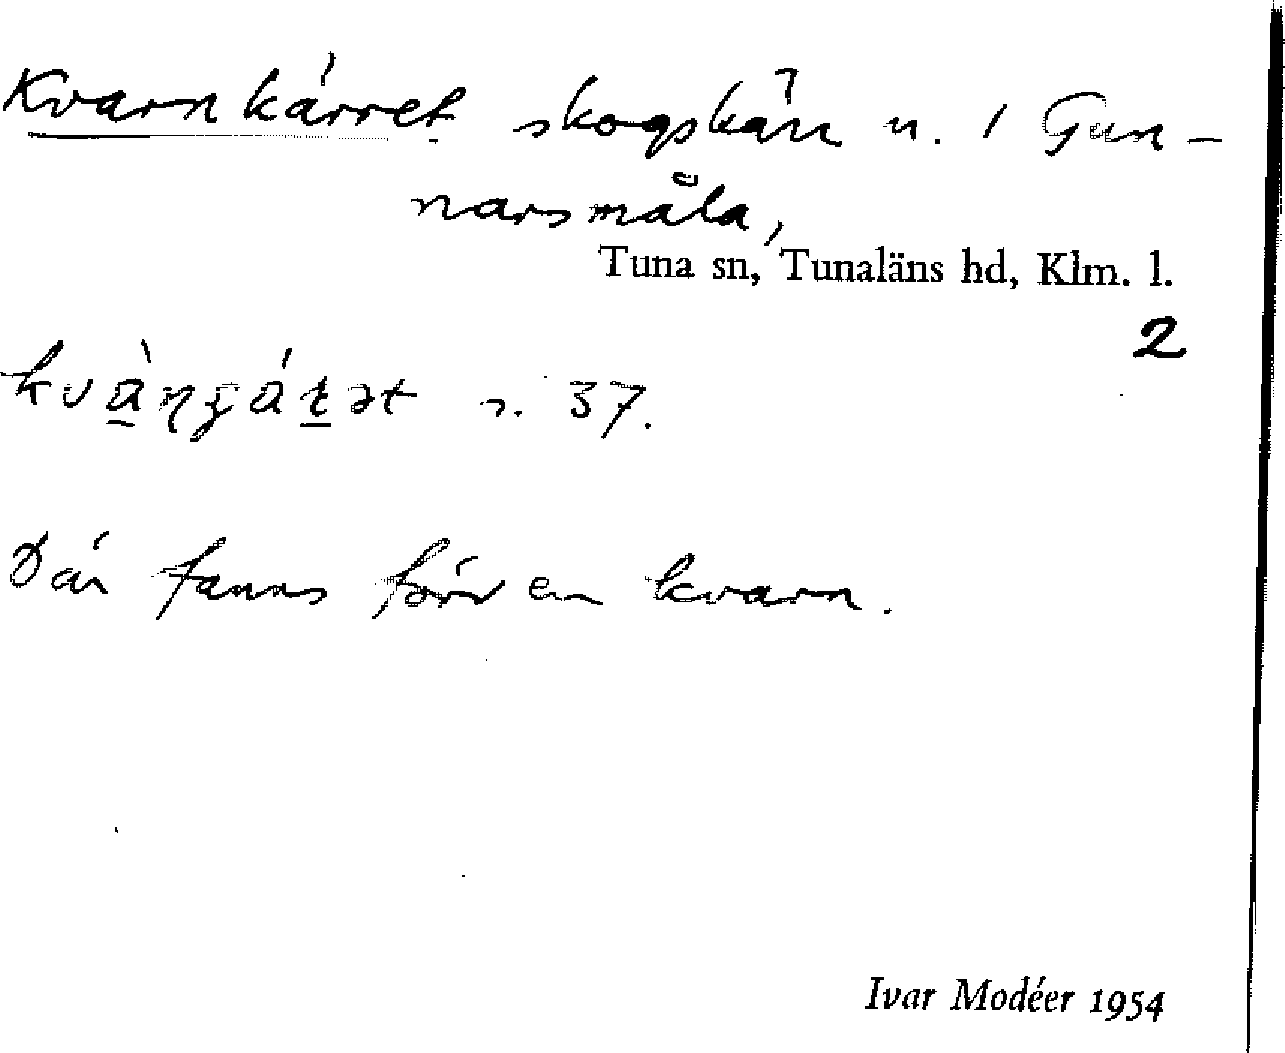 Kvarnkärret skogskärr u. 1 Gun-
narsmåla,
Tuna sn, Tunaläns hd, Klm. l.
2
s. 37.
Där fanns förr en kvarn.
Ivar Modéer 1954